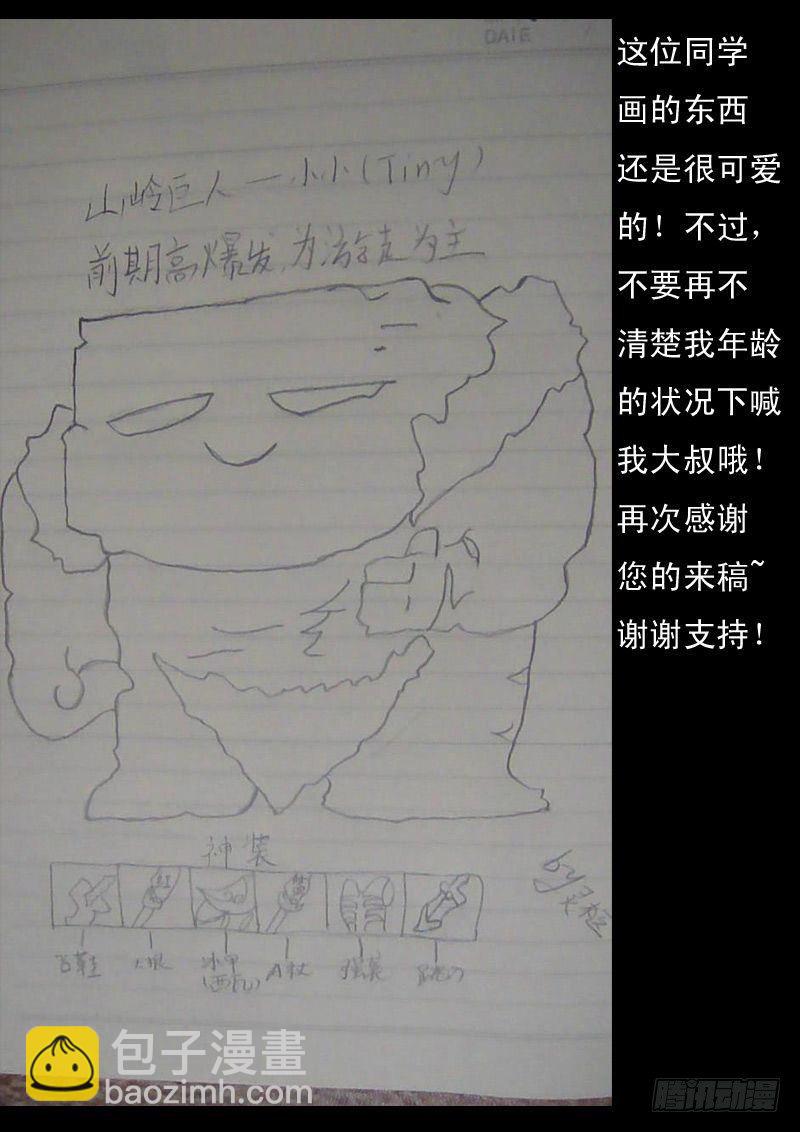 DATE
山岭巨人—小小(Tiny)
前期高爆发,为法
为主
神装
飞鞋
冰甲
(西瓜)
A杖
强袭
跳刀
by
这位同学
画的东西
还是很可爱
的！不过，
不要再不
清楚我年龄
的状况下喊
我大叔哦！
再次感谢
您的来稿~
谢谢支持！
包子漫畫
baozimh.com
腾讯动漫